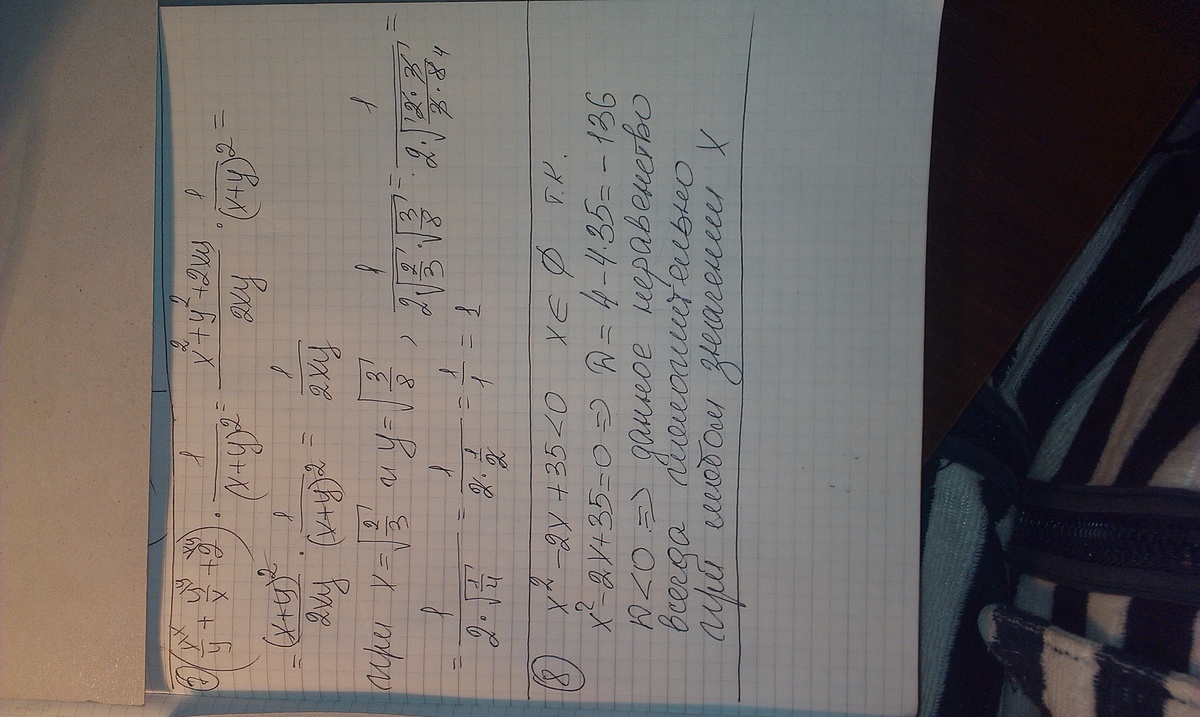 7) (x/y + y/x + 2) · 1/(x+y)² = (x²+y²+2xy)/(2xy) · 1/(x+y)² =
= (x+y)²/(2xy) · 1/(x+y)² = 1/(2xy)
при x=√(2/3) и y=√(3/8), 1/(2√(2/3)·√(3/8)) = 1/(2·√((2·3)/(3·8))) =
= 1/(2·√(1/4)) = 1/(2·1/2) = 1/1 = 1
8) x²-2x+35<0 x∈ø т.к.
x²-2x+35=0 ⇒ D=4-4·35=-136
D<0 ⇒ данное неравенство
всегда положительно
при любом значении x